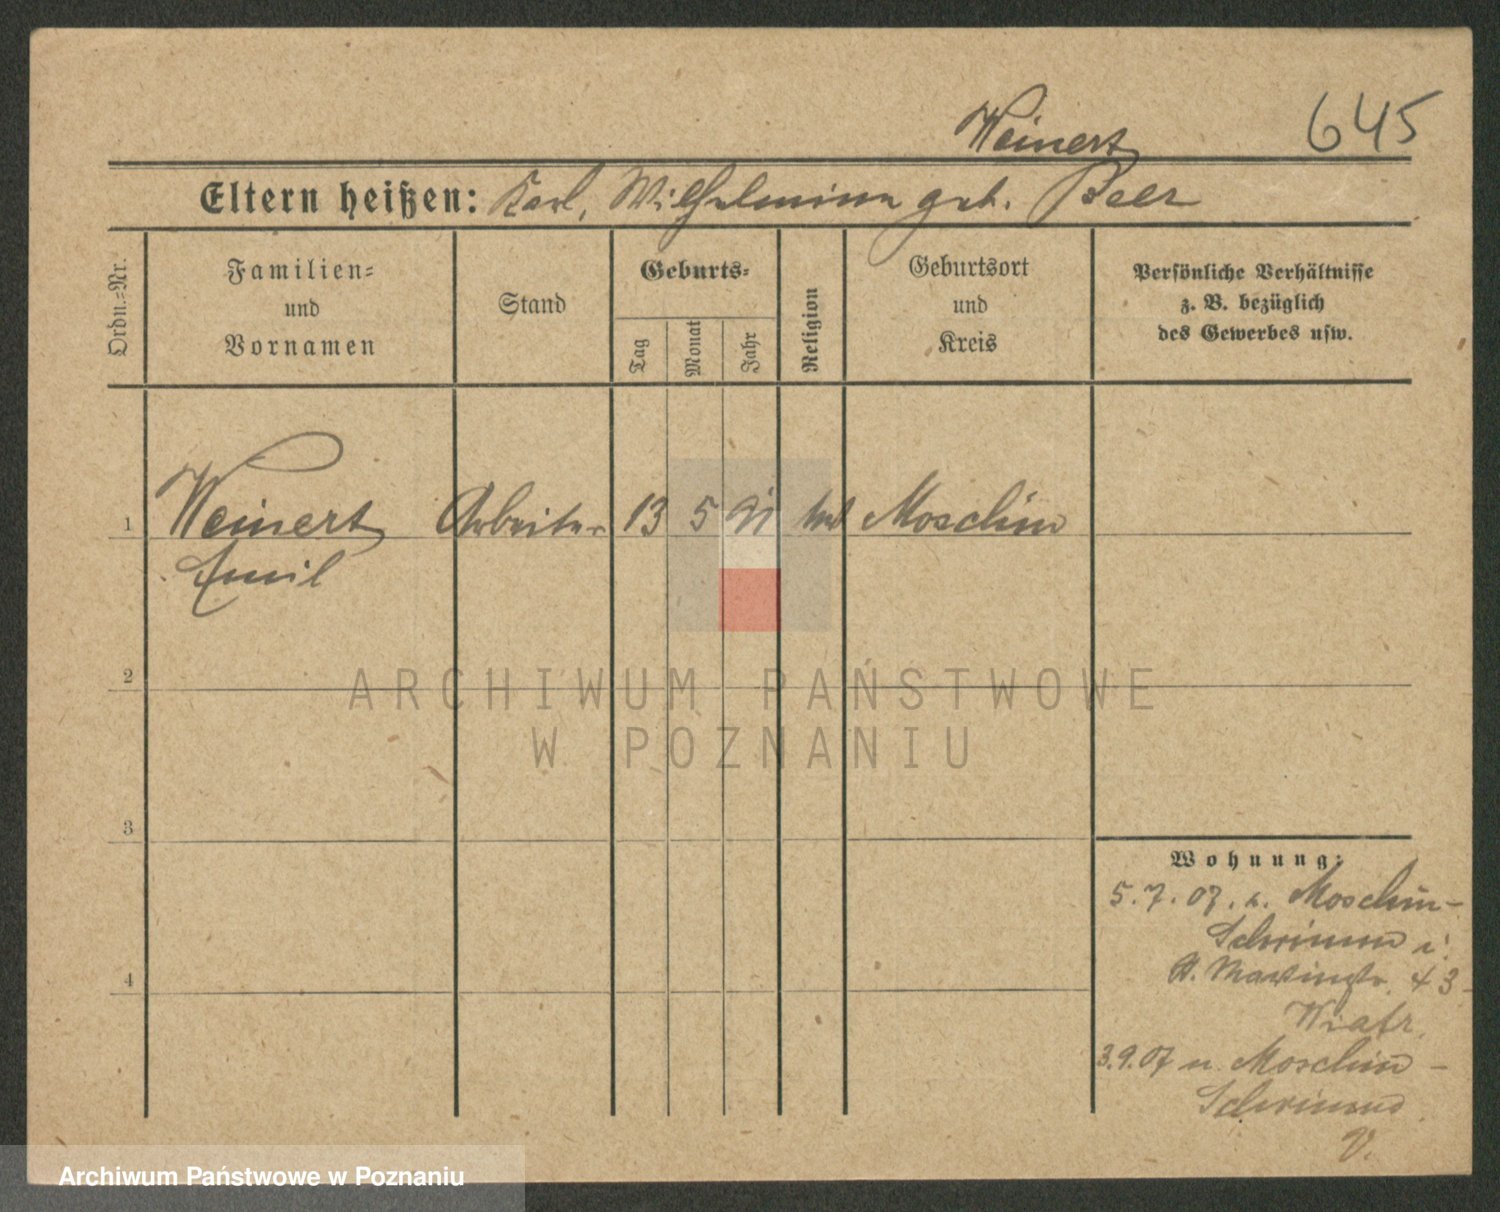 645
Weinert
Eltern heißen: Karl, Wilhelmine geb. Beer
Ordn.-Nr.
Familien-
und
Vornamen
Stand
Geburts-
Tag
Monat
Jahr
Religion
Geburtsort
und
Kreis
Persönliche Verhältnisse
z. B. bezüglich
des Gewerbes usw.
1 Weinert Arbeiter 13 5 91 Moschin
Emil
2
3
4
Wohnung:
5.7.07. v. Moschin-
Schrimm i.
St. Martinstr. 43
Wiatr.
3.9.07 n. Moschin -
Schrimm
V.
ARCHIWUM PAŃSTWOWE
W POZNANIU
Archiwum Państwowe w Poznaniu